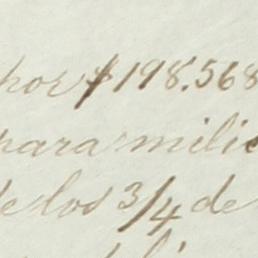 por $198.568
para milic
de los 3/4 de